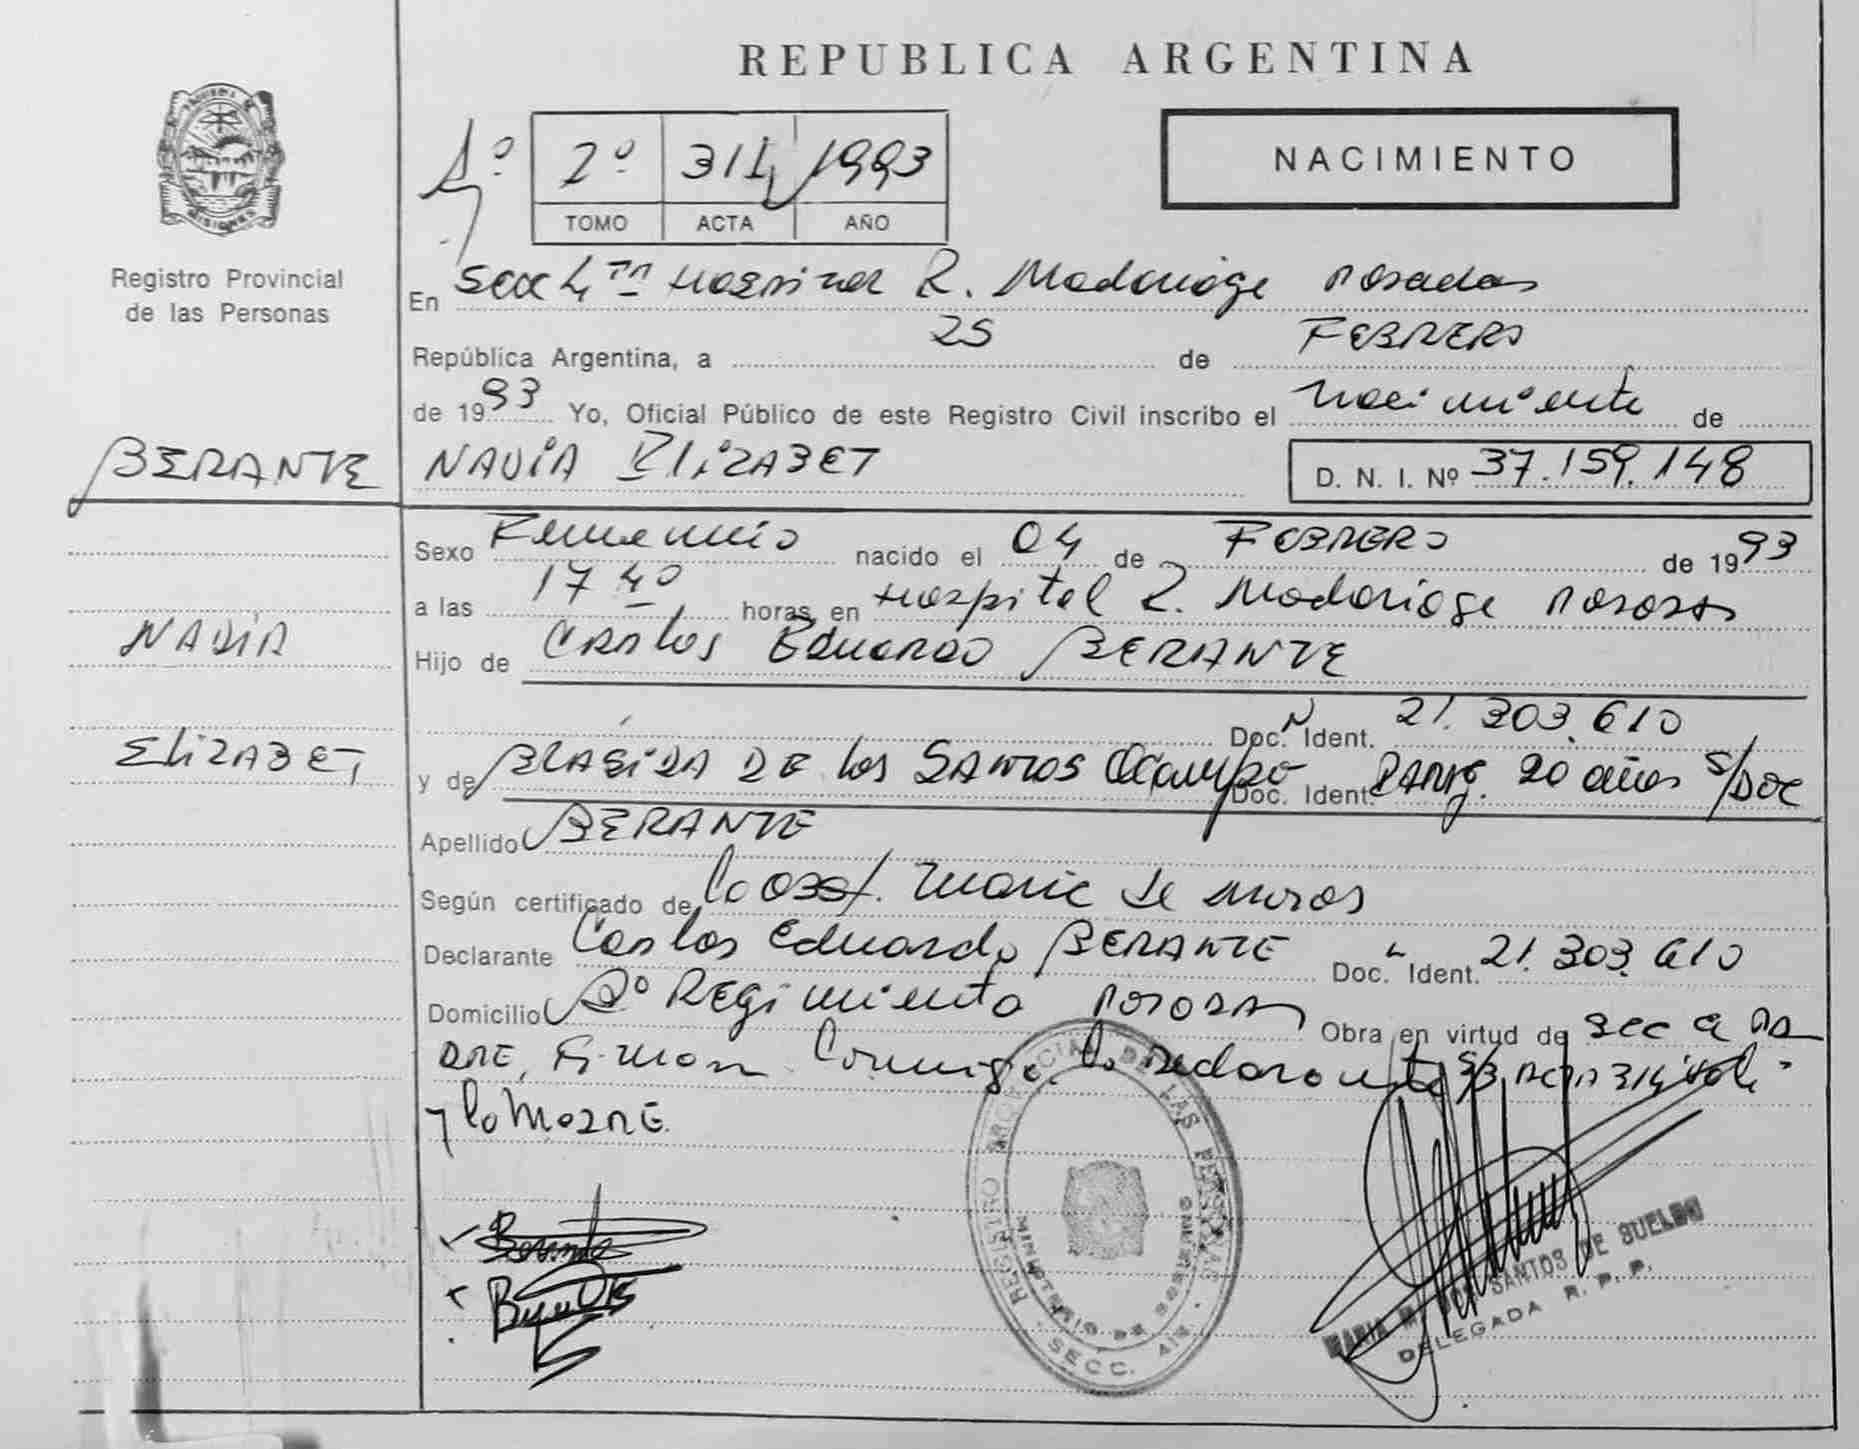 REPUBLICA ARGENTINA
NACIMIENTO
1º 2º 314 1993
TOMO ACTA AÑO
MISIONES
Registro Provincial
de las Personas
En Secc 4ta Hospital R. Madariaga Posadas
República Argentina, a 25 de FEBRERO
de 1993 Yo, Oficial Público de este Registro Civil inscribo el nacimiento de
BERANTE NADIA ELIZABET D. N. I. Nº 37.159.148
Sexo Femenino nacido el 04 de FEBRERO de 1993
a las 17 40 horas en Hospital R. Madariaga Posadas
NADIA
Hijo de Carlos Eduardo BERANTE
Doc. Ident. 21.303.610
ELIZABET
y de DE los SANTOS Ocampo Doc. Ident. 20 años s/DOC
Apellido BERANTE
Según certificado de la Obst. Maria de
Declarante Carlos Eduardo BERANTE Doc. Ident. 21.303.610
Domicilio Regimiento Posadas Obra en virtud de ser el PA
DRE, Firman Conmigo la Declarante S/B ACTA 314 Vale
y la MADRE.
REGISTRO PROVINCIAL DE LAS PERSONAS
MINISTERIO DE GOBIERNO
SECC.
MARIA M. DOS SANTOS DE SUELDO
DELEGADA R. P. P.